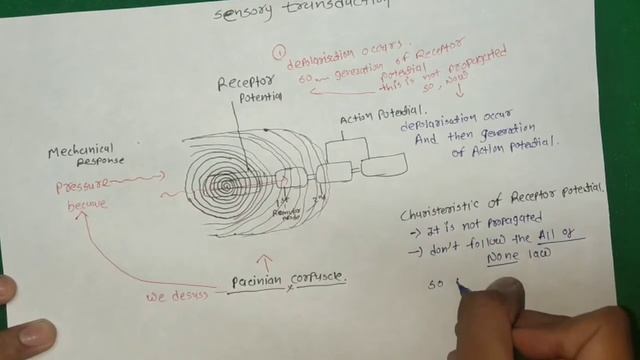 sensory transduction
① depolarisation occurs.
so generation of Receptor
potential
this is not propagated
so, Now
Receptor
Potential
Action Potential.
depolarisation occur
And then generation
of Action potential.
Mechanical
Response
Pressure
becuve
1st
2nd
Charisteristic of Receptor potential.
-> It is not propagated
-> don't follow the All or
None law
so
pacinian corfuscle.
we desuss